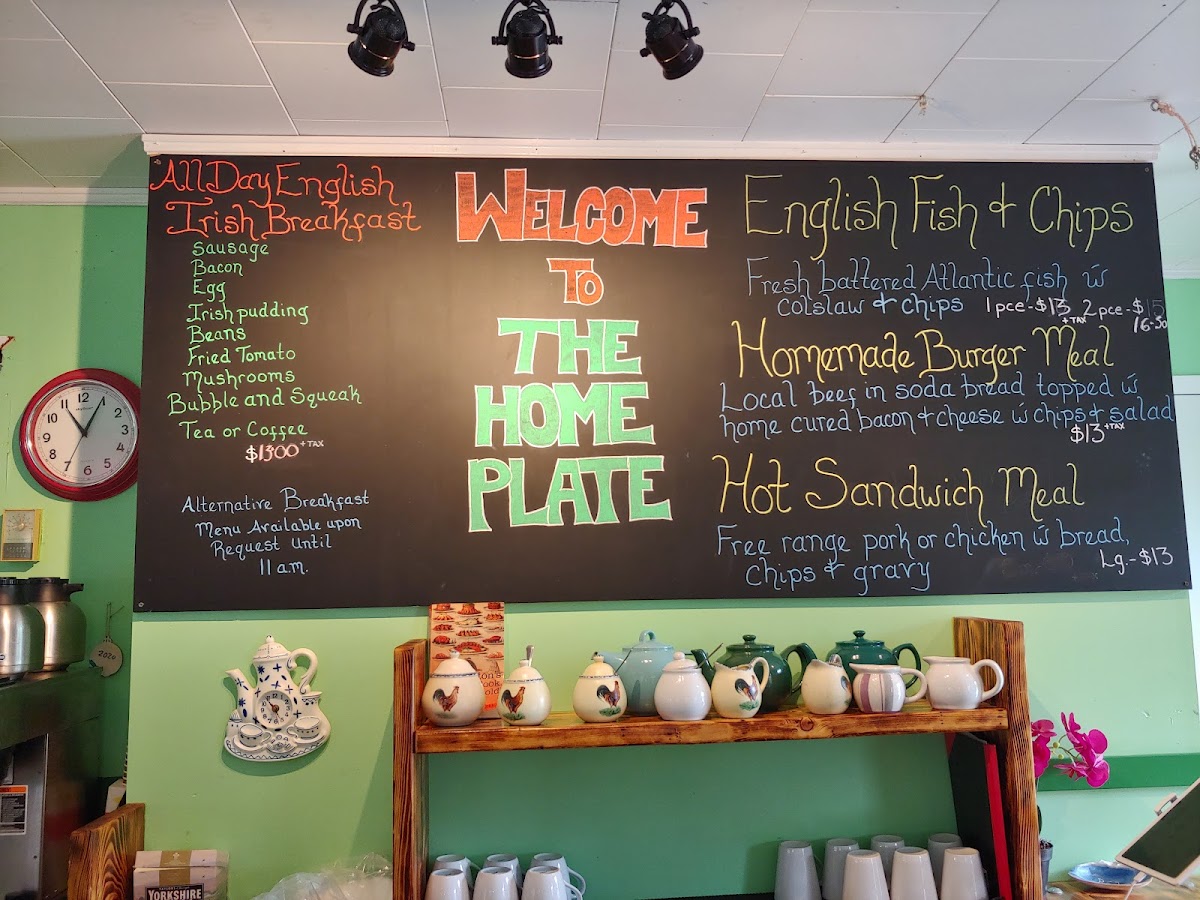 All Day English
Irish Breakfast
Sausage
Bacon
Egg
Irish pudding
Beans
Fried Tomato
Mushrooms
Bubble and Squeak
Tea or Coffee
$1300 +TAX
Alternative Breakfast
Menu Available upon
Request Until
11 a.m.
WELCOME
TO
THE
HOME
PLATE
English Fish & Chips
Fresh battered Atlantic fish w
colslaw & chips 1 pce-$13 2 pce-$15
+TAX
16-50
Homemade Burger Meal
Local beef in soda bread topped w
home cured bacon & cheese w chips & salad
$13 +TAX
Hot Sandwich Meal
Free range pork or chicken w bread,
chips & gravy
Lg.-$13
12
1
2
3
4
5
6
7
8
9
10
11
2020
YORKSHIRE